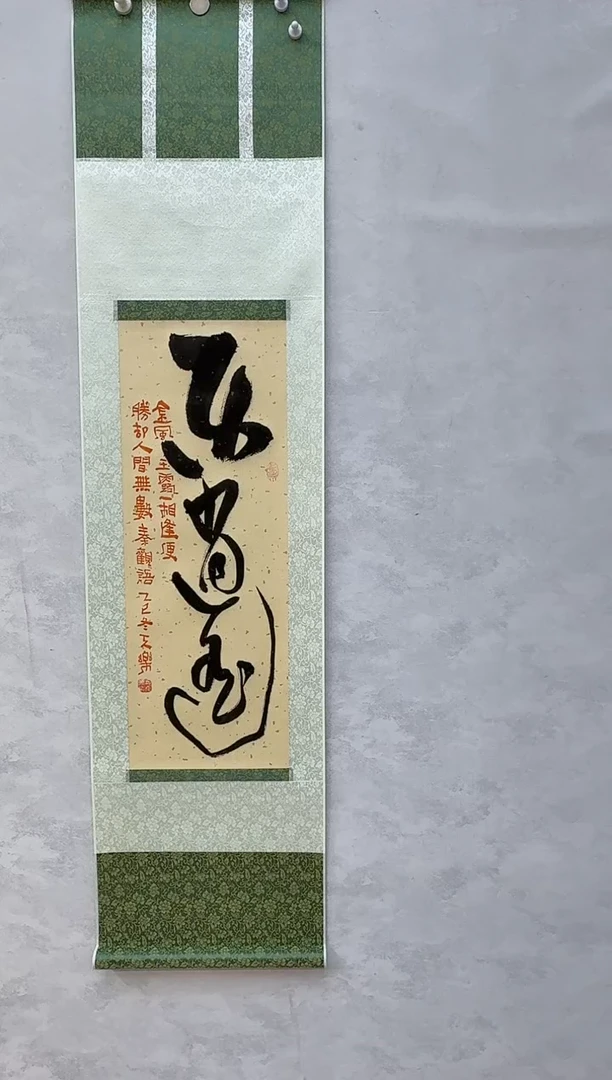 乐逍遥
金風玉露一相逢便
勝却人間無數秦觀語乙巳冬天樂